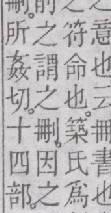 之意也云冊書也
之符命也。築氏爲
之謂之刪。因之
刪。所姦切。十四部。